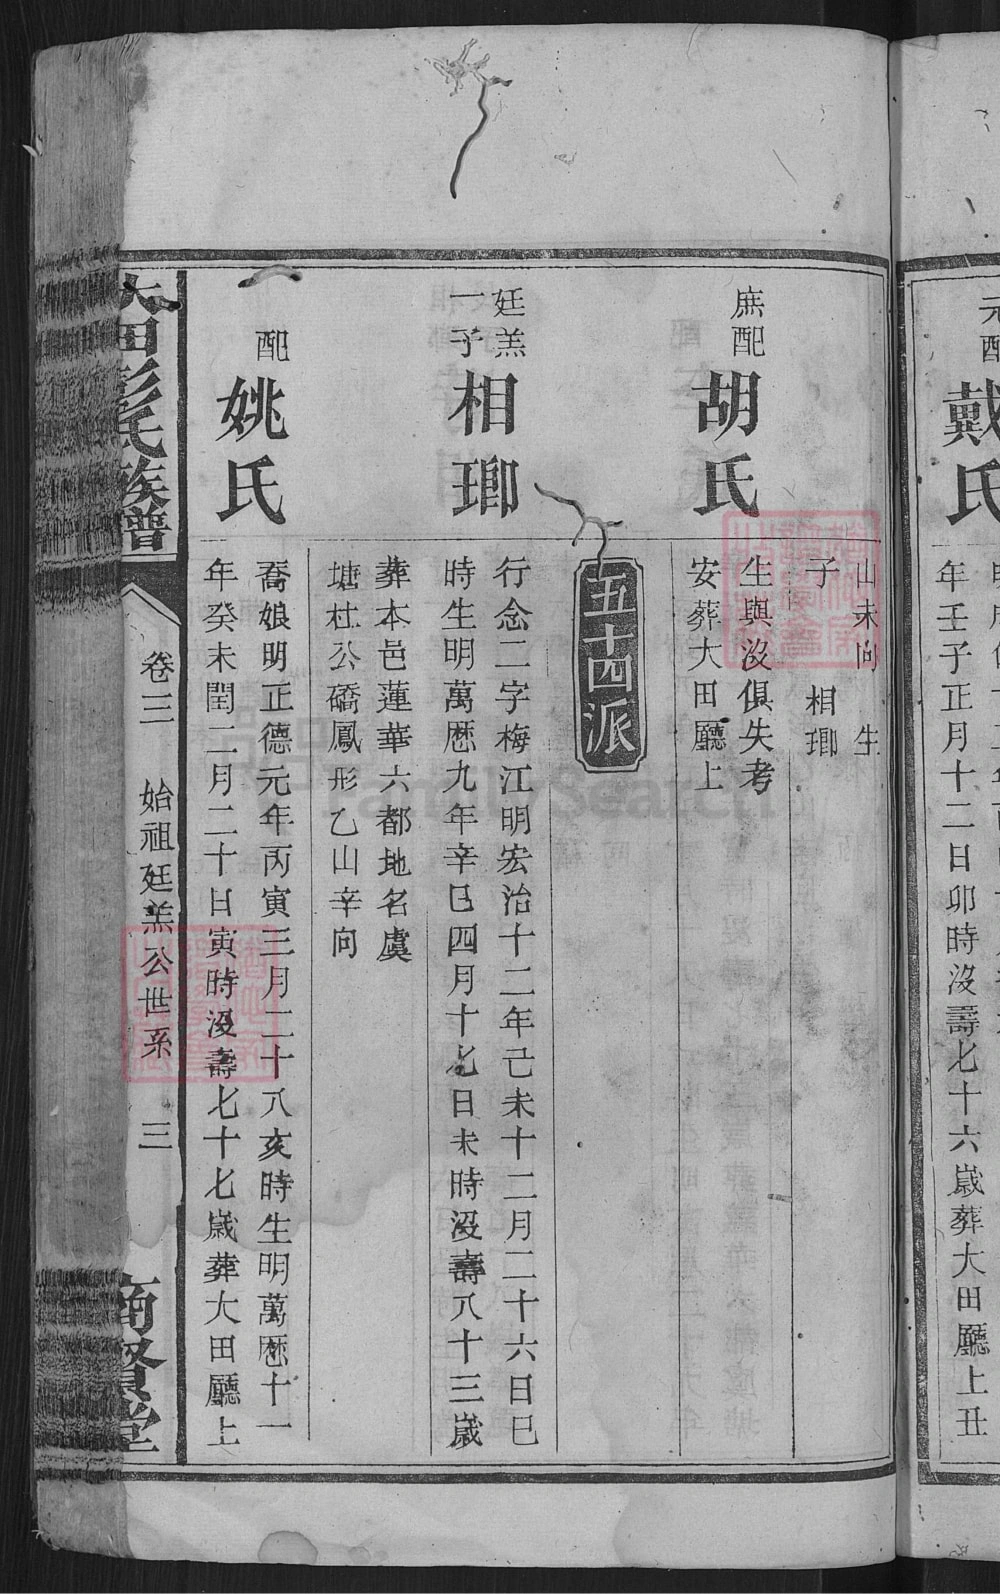 元配
戴氏
年壬子正月十二日卯時沒壽七十六歲葬大田廳上丑
山未向　生
子　相瑯
庶配
胡氏
生與沒俱失考
安葬大田廳上
五十四派
廷羔
一子
相瑯
行念二字梅江明宏治十二年己未十二月二十六日巳
時生明萬歷九年辛巳四月十七日未時沒壽八十三歲
葬本邑蓮華六都地名虞
塘杜公礄鳳形乙山辛向
配
姚氏
喬娘明正德元年丙寅三月二十八亥時生明萬歷十一
年癸未閏二月二十日寅時沒壽七十七歲葬大田廳上
大田彭氏族譜
卷三　始祖廷羔公世系　三
商賢堂
FamilySearch